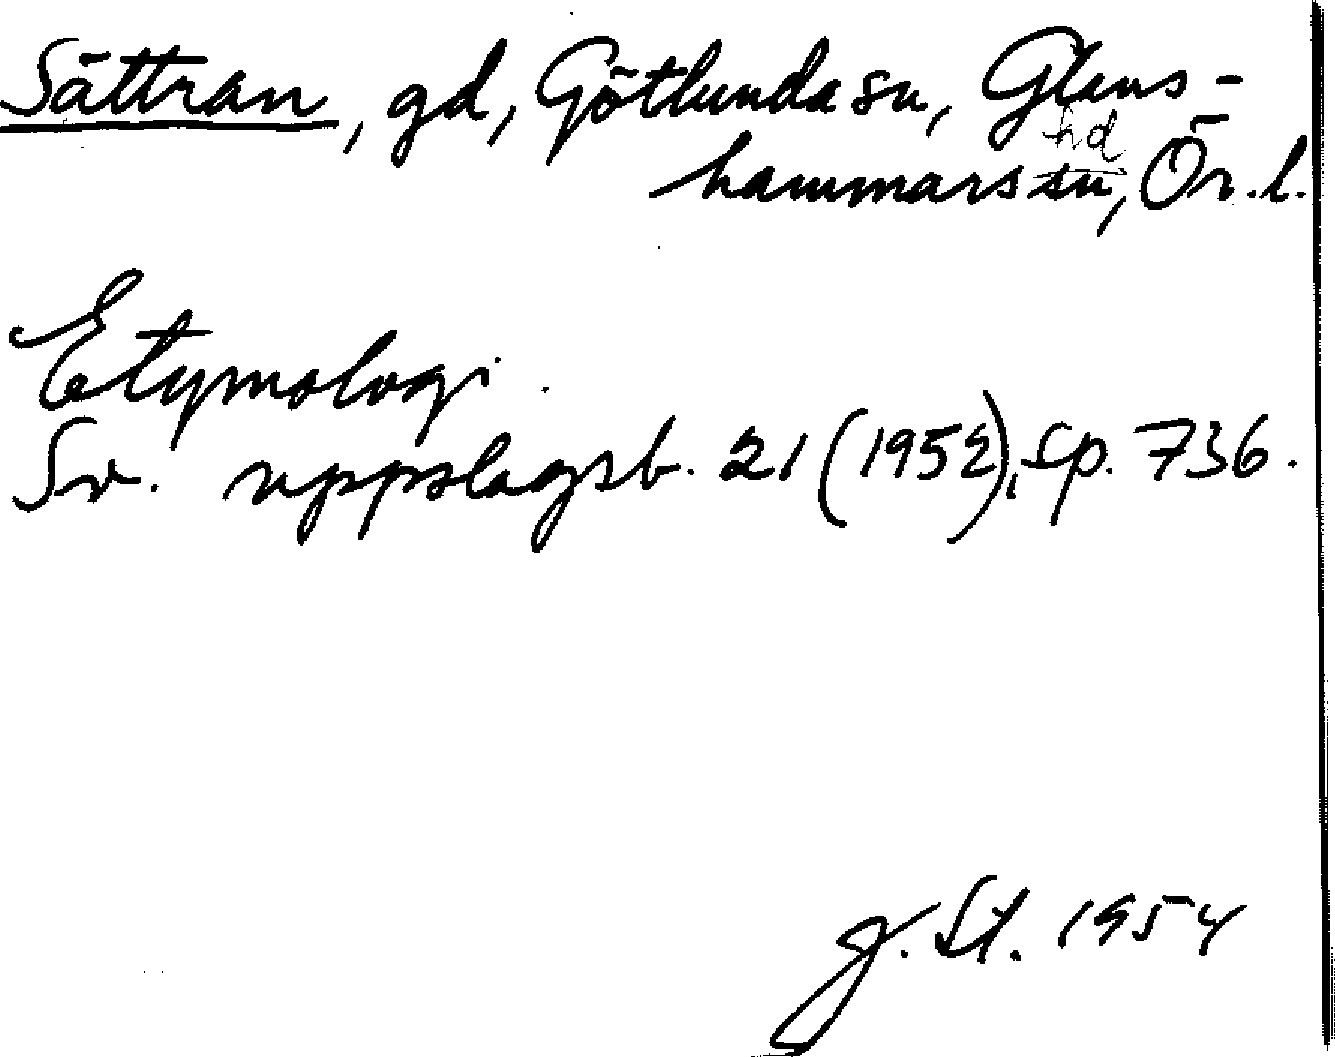 Sättran, gd, Götlunda sn, Glans-
hammars hd, Ör. l.
Etymologi.
Sv. uppslagsb. 21 (1952), sp. 736.
J. St. 1954